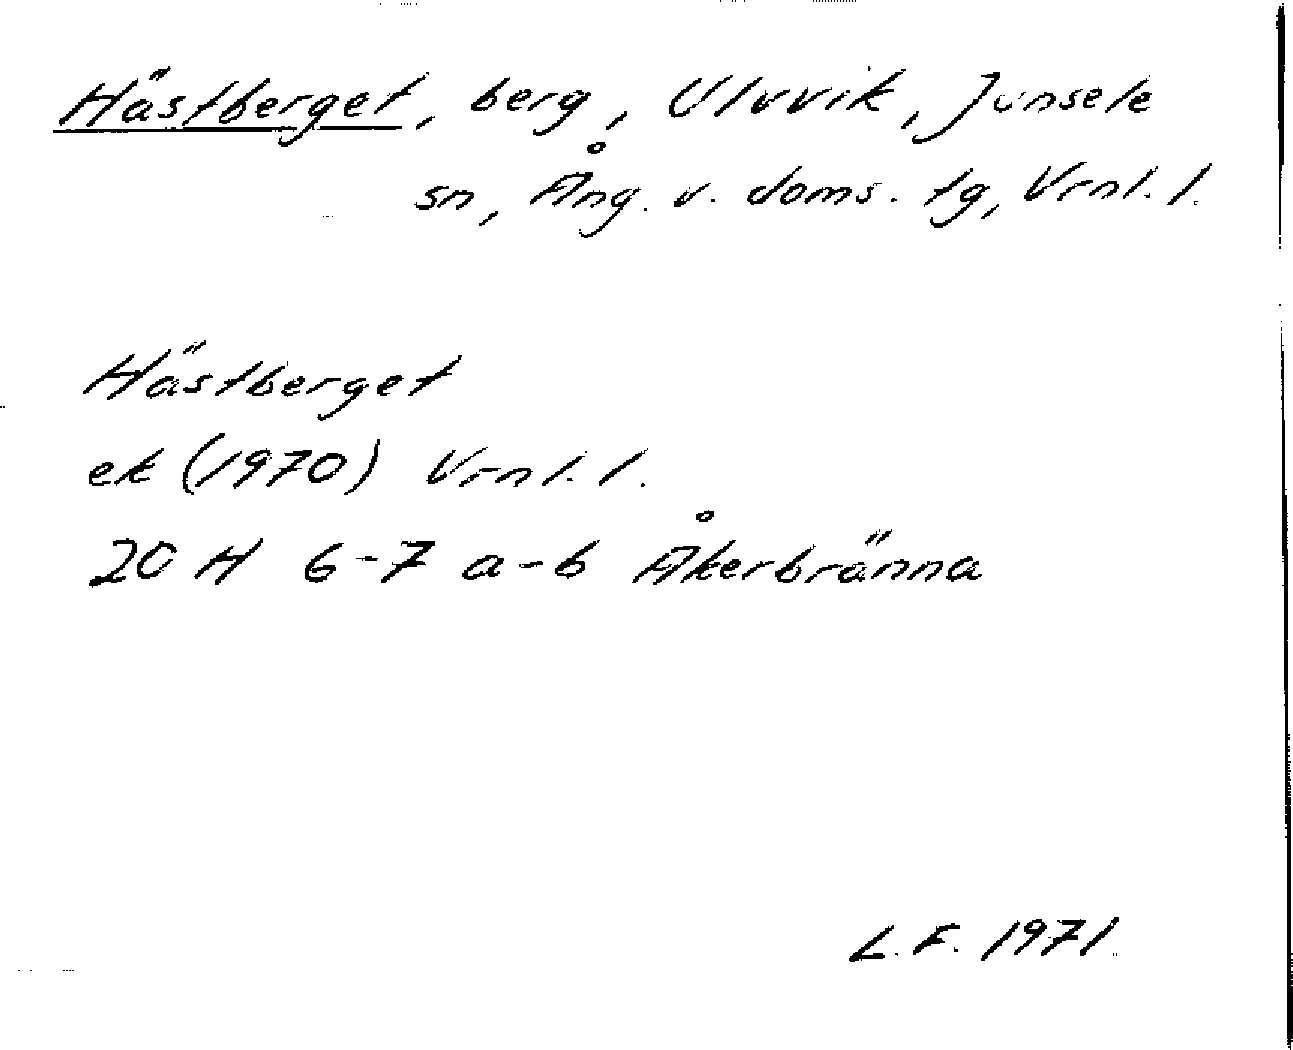 Hästberget, berg, Uluvik, Junsele
sn, Ång. v. doms. tg, Vrnl. l.
Hästberget
ek (1970) Vrnl. l.
20 H 6-7 a-b Åkerbränna
L. F. 1971